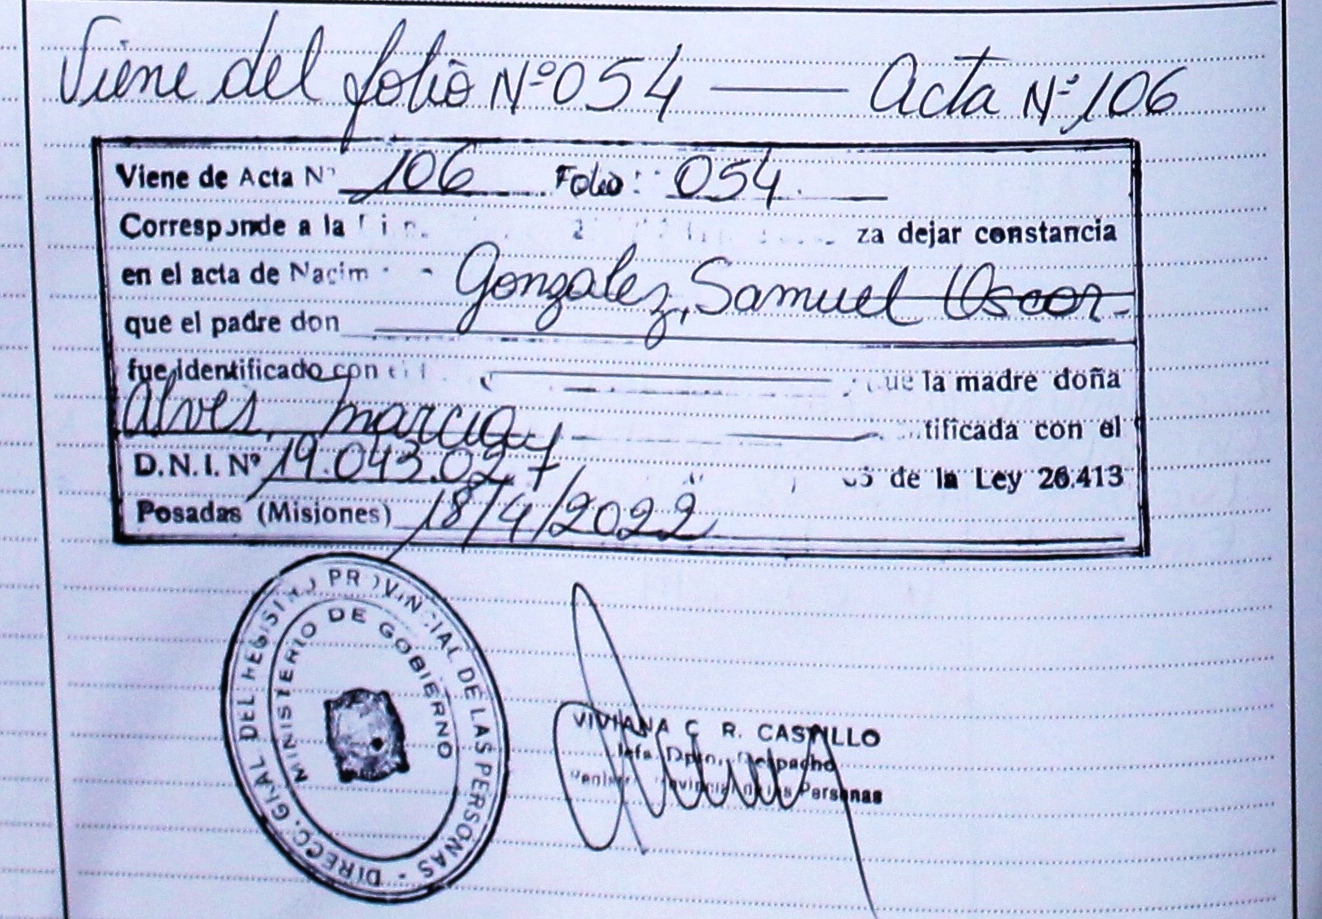 Viene del folio Nº 054 — Acta Nº 106
Viene de Acta Nº 106 Folio: 054
Corresponde a la za dejar constancia
en el acta de Nacim Gonzalez, Samuel Oscar
que el padre don
fue identificado con que la madre doña
Alves, Marcia tificada con el
D.N.I. Nº 19.043.027 de la Ley 26.413
Posadas (Misiones) 18/4/2022
DIRECC. GRAL DEL REGISTRO PROVINCIAL DE LAS PERSONAS -
MINISTERIO DE GOBIERNO
VIVIANA C R. CASTILLO
Jefa Dpto. Despacho
Registro Provincial de las Personas